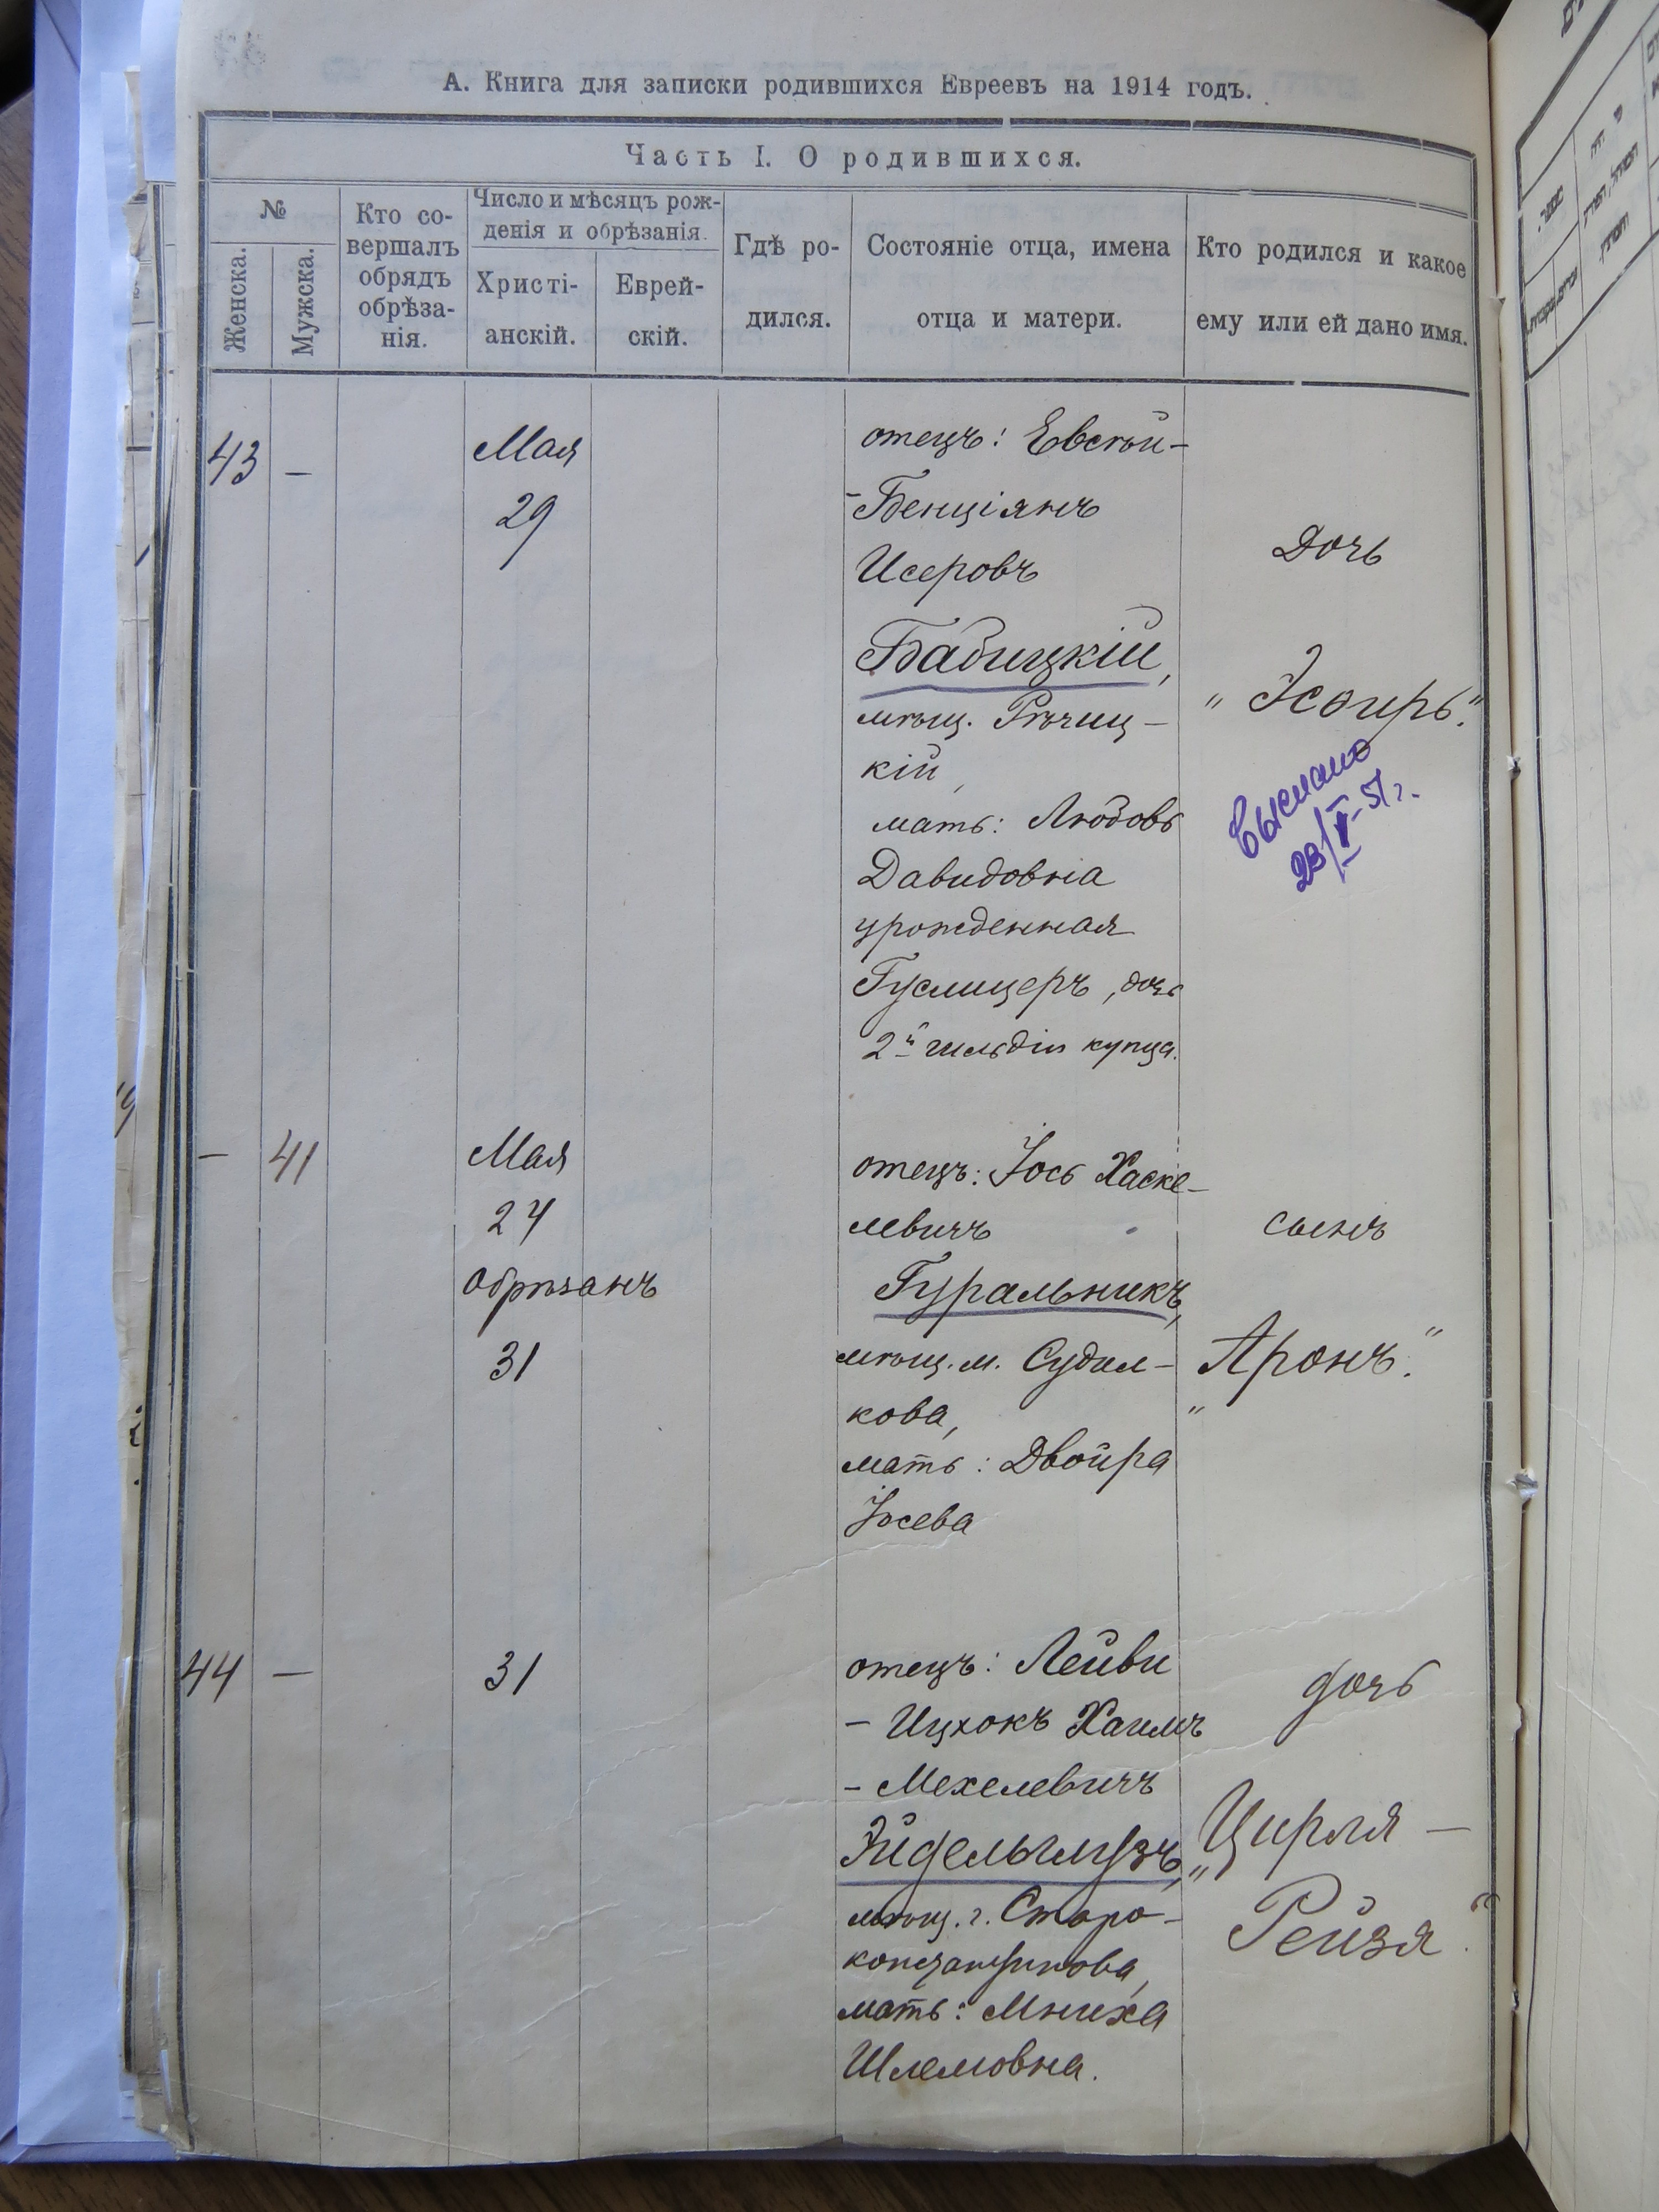 А. Книга для записки родившихся Евреевъ на 1914 годъ.
Часть I. О родившихся.
№
Женска.
Мужска.
Кто со-
вершалъ
обрядъ
обрѣза-
нія.
Число и мѣсяцъ рож-
денія и обрѣзанія.
Христі-
анскій.
Еврей-
скій.
Гдѣ ро-
дился.
Состояніе отца, имена
отца и матери.
Кто родился и какое
ему или ей дано имя.
43 — Мая
29
отецъ:
-Бенціянъ
Исеровъ
Бабицкій,
мѣщ. Рѣчиц-
кій,
мать: Любовь
Давидовна
урожденная
Гуслицеръ, дочь
2й гильдіи купца.
Дочь
„Эсѳирь“.
Выслано
23/V-51 г.
— 41 Мая
24
обрѣзанъ
31
отецъ: Іось Хаске-
левичъ
Гуральникъ,
мѣщ. м. Судил-
кова,
мать: Двойра
Іосева
сынъ
„Аронъ“.
44 — 31
отецъ: Лейви
- Ицхокъ Хаимъ
- Мехелевичъ
Эйдельглузъ,
мѣщ. г. Старо-
константинова,
мать: Мниха
Шлемовна.
дочь
„Цирля —
Рейзя“.